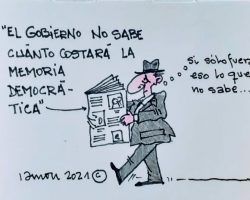 "EL GOBIERNO NO SABE
CUÁNTO COSTARÁ LA
MEMORIA
DEMOCRÁ-
TICA"
si sólo fuera
eso lo que
no sabe...
2021 ©